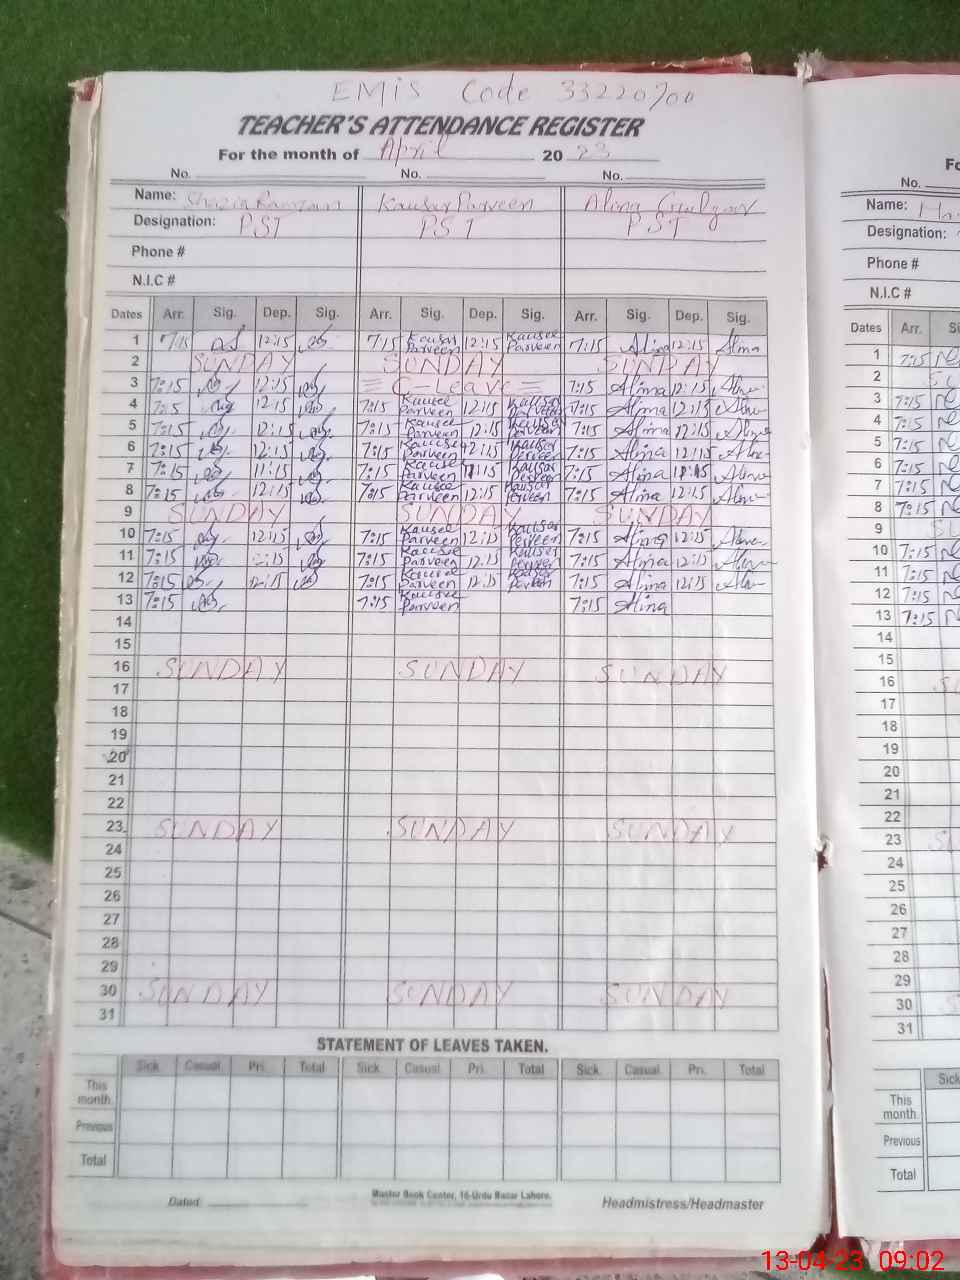 EMIS Code 33220700
TEACHER'S ATTENDANCE REGISTER
For the month of April 2023
No. No. No.
Name: Shazia Ramzan Kausar Parveen Alina
Designation: PST PST PST
Phone #
N.I.C #
Dates Arr. Sig. Dep. Sig. Arr. Sig. Dep. Sig. Arr. Sig. Dep. Sig.
1 7:15 12:15 7:15 Kausar Parveen 12:15 Kausar Parveen 7:15 Alina 12:15 Alina
2 SUNDAY SUNDAY SUNDAY
3 7:15 12:15 C-Leave 7:15 Alina 12:15 Alina
4 7:15 12:15 7:15 Kausar Parveen 12:15 Kausar Parveen 7:15 Alina 12:15 Alina
5 7:15 12:15 7:15 Kausar Parveen 12:15 Kausar Parveen 7:15 Alina 12:15 Alina
6 7:15 12:15 7:15 Kausar Parveen 12:15 Kausar Parveen 7:15 Alina 12:15 Alina
7 7:15 11:15 7:15 Kausar Parveen 11:15 Kausar Parveen 7:15 Alina 11:15 Alina
8 7:15 12:15 7:15 Kausar Parveen 12:15 Kausar Parveen 7:15 Alina 12:15 Alina
9 SUNDAY SUNDAY SUNDAY
10 7:15 12:15 7:15 Kausar Parveen 12:15 Kausar Parveen 7:15 Alina 12:15 Alina
11 7:15 12:15 7:15 Kausar Parveen 12:15 Kausar Parveen 7:15 Alina 12:15 Alina
12 7:15 12:15 7:15 Kausar Parveen 12:15 Kausar Parveen 7:15 Alina 12:15 Alina
13 7:15 7:15 Kausar Parveen 7:15 Alina
14
15
16 SUNDAY SUNDAY SUNDAY
17
18
19
20
21
22
23 SUNDAY SUNDAY SUNDAY
24
25
26
27
28
29
30 SUNDAY SUNDAY SUNDAY
31
STATEMENT OF LEAVES TAKEN.
Sick. Casual. Pri. Total Sick. Casual. Pri. Total Sick. Casual. Pri. Total
This month.
Previous
Total
Dated: Master Book Center, 16-Urdu Bazar Lahore. Headmistress/Headmaster
No.
Name:
Designation:
Phone #
N.I.C #
Dates Arr.
1 7:15
2
3 7:15
4 7:15
5 7:15
6 7:15
7 7:15
8 7:15
9
10 7:15
11 7:15
12 7:15
13 7:15
14
15
16
17
18
19
20
21
22
23
24
25
26
27
28
29
30
31
Sick
This month.
Previous
Total
13-04-23 09:02